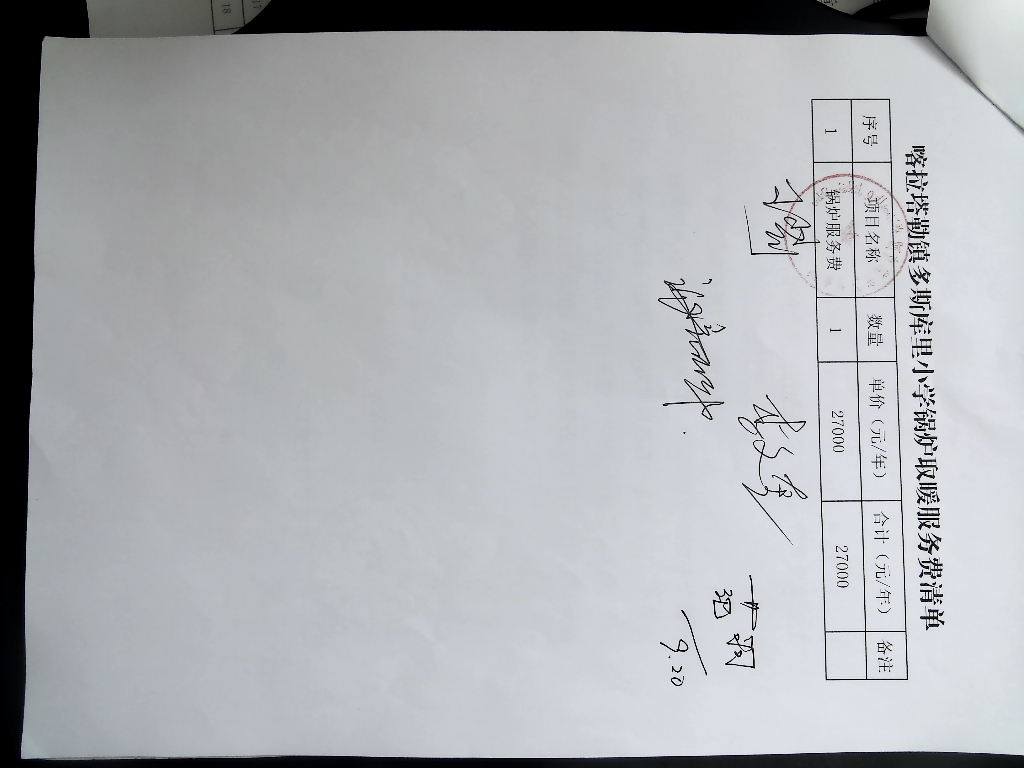 喀拉塔勒镇多斯库里小学锅炉取暖服务费清单
序号 项目名称 数量 单价（元/年） 合计（元/年） 备注
1 锅炉服务费 1 27000 27000
9.20
17
18